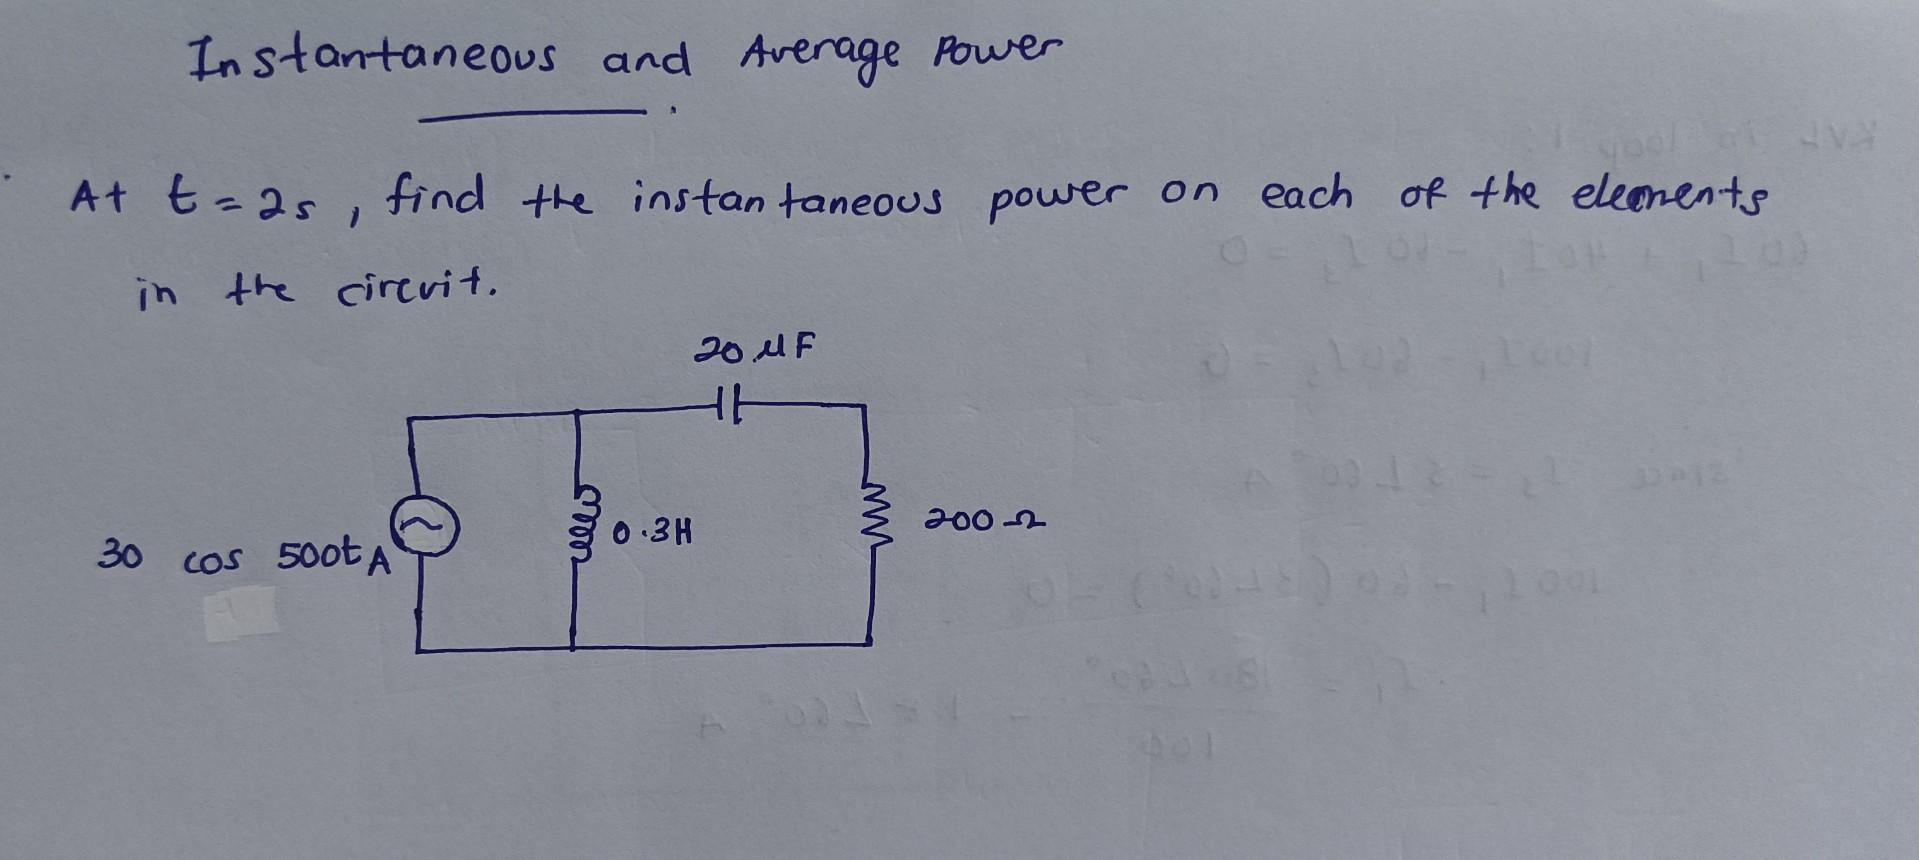 Instantaneous and Average Power
At t = 2s, find the instantaneous power on each of the elements
in the circuit.
20 μF
0.3H
200 Ω
30 cos 500t A